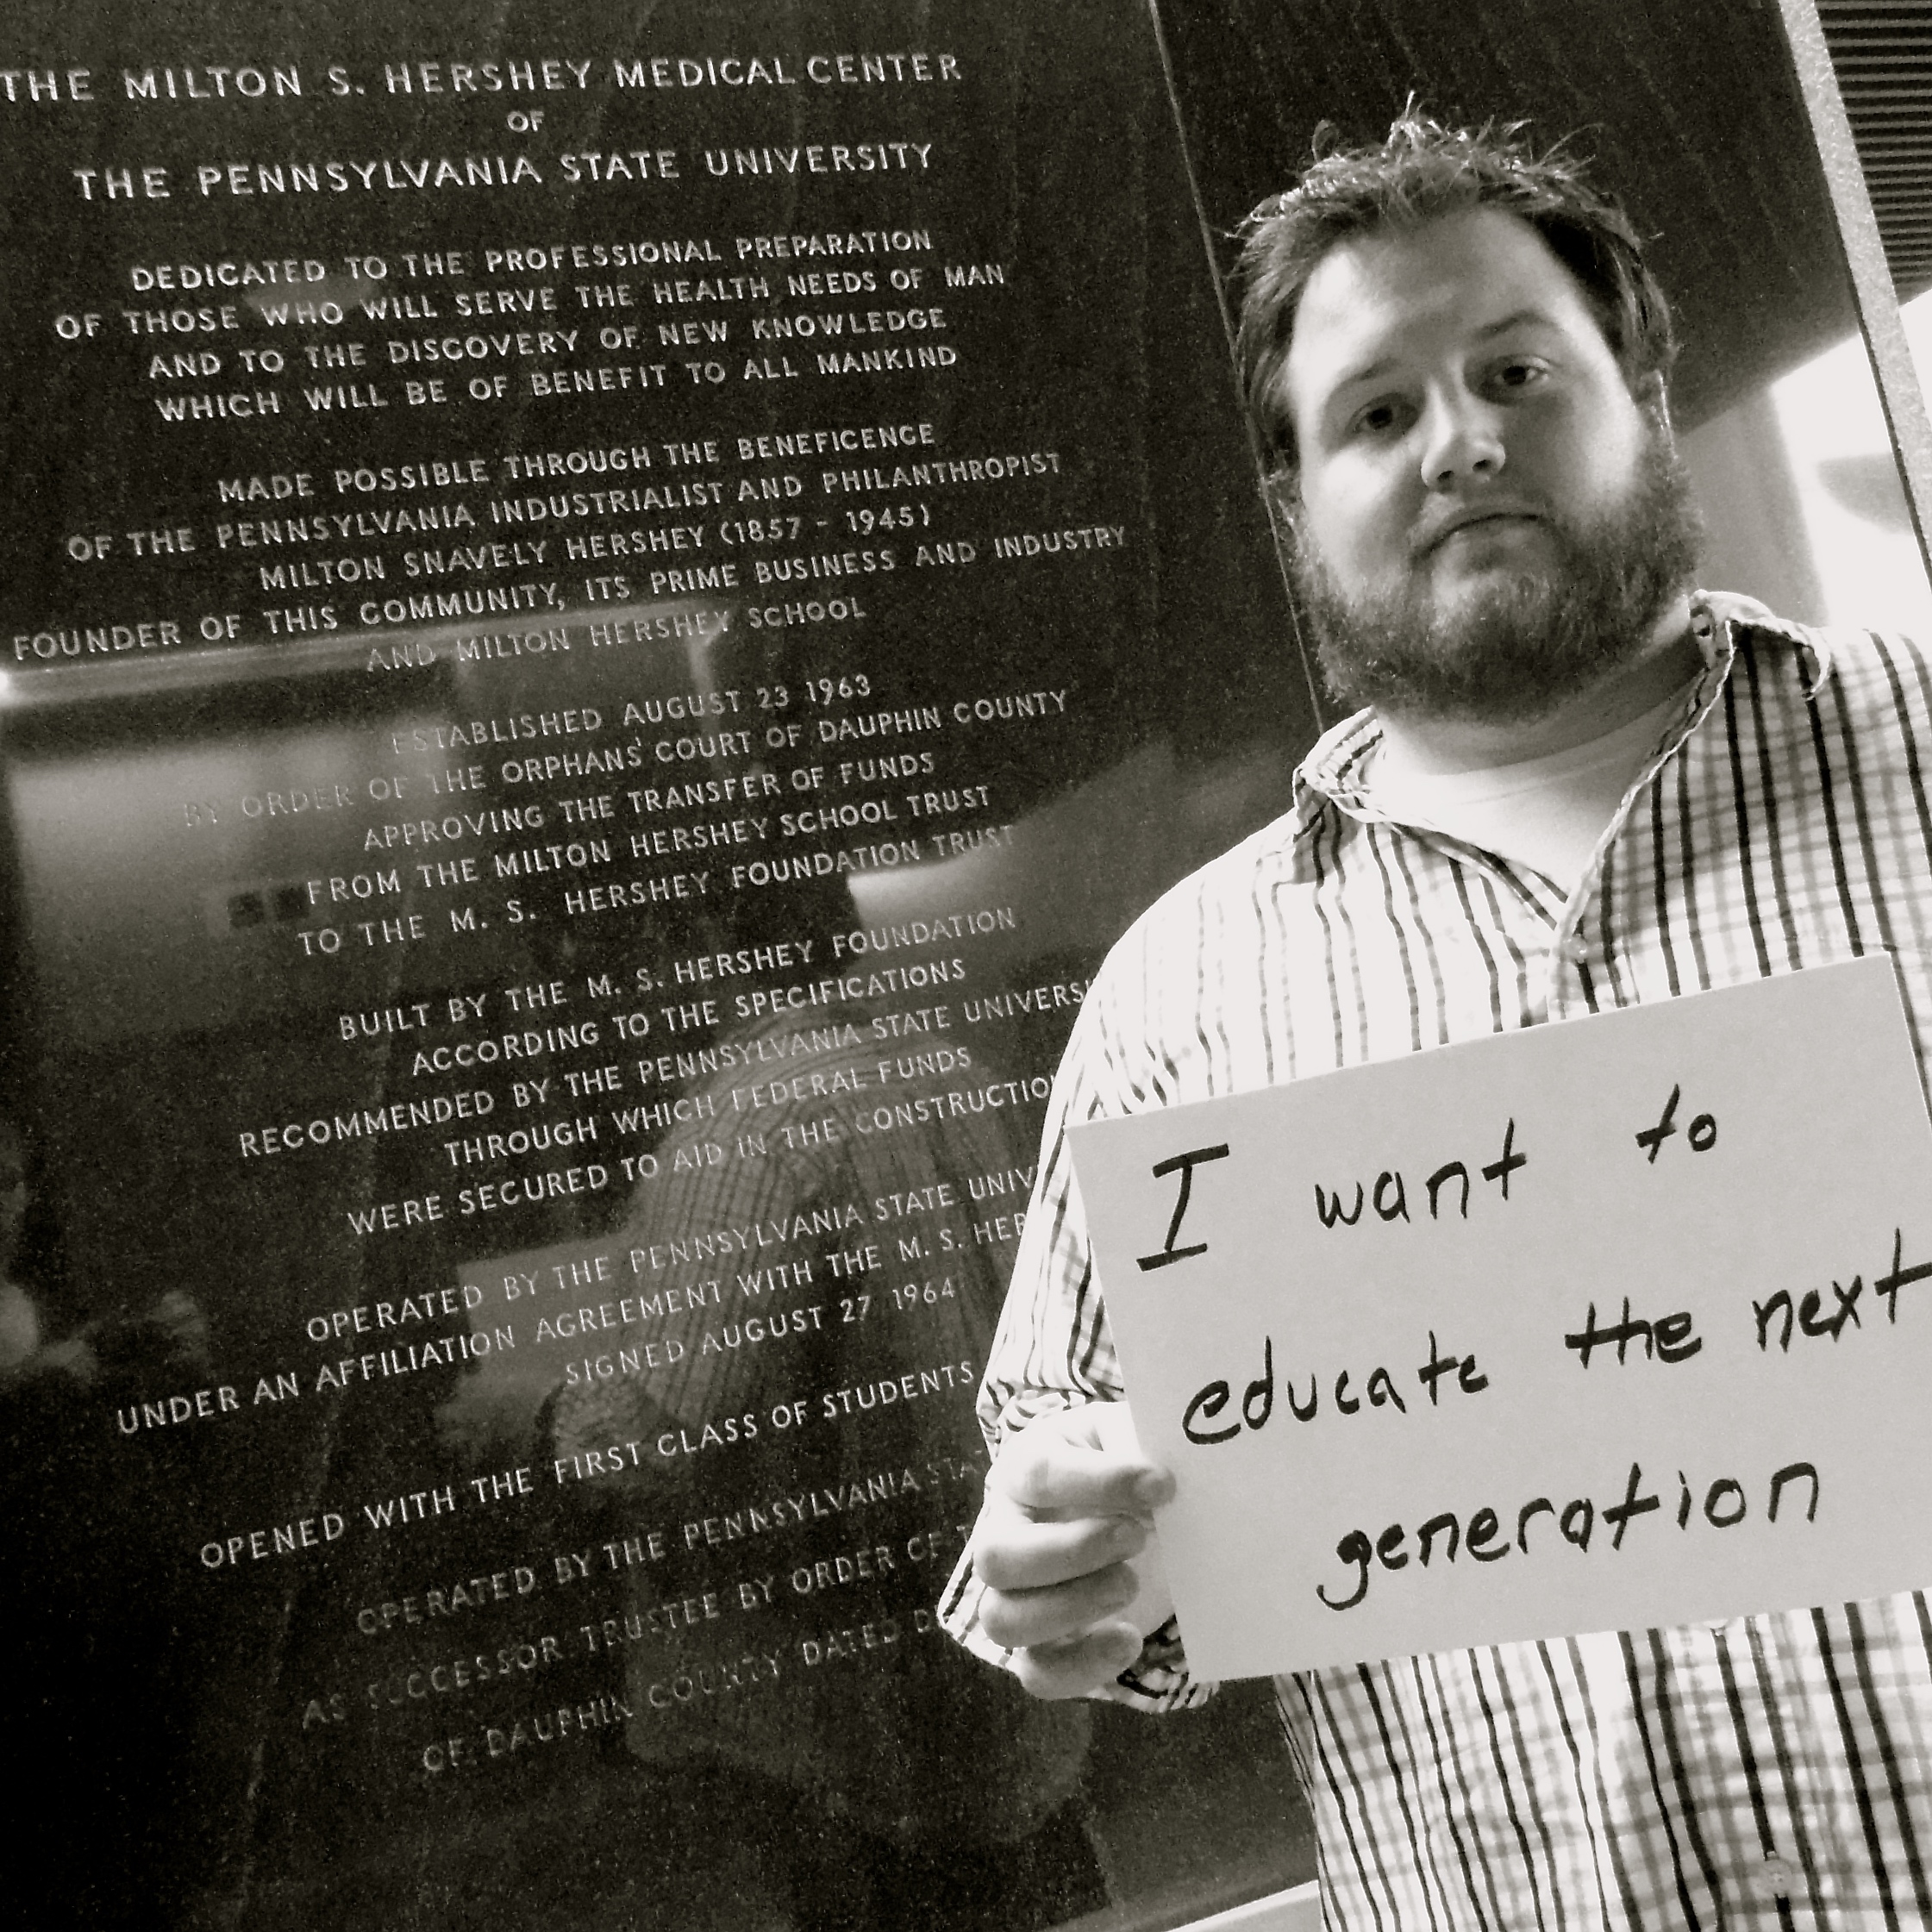 THE MILTON S. HERSHEY MEDICAL CENTER
OF
THE PENNSYLVANIA STATE UNIVERSITY
DEDICATED TO THE PROFESSIONAL PREPARATION
OF THOSE WHO WILL SERVE THE HEALTH NEEDS OF MAN
AND TO THE DISCOVERY OF NEW KNOWLEDGE
WHICH WILL BE OF BENEFIT TO ALL MANKIND
MADE POSSIBLE THROUGH THE BENEFICENCE
OF THE PENNSYLVANIA INDUSTRIALIST AND PHILANTHROPIST
MILTON SNAVELY HERSHEY (1857 - 1945)
FOUNDER OF THIS COMMUNITY, ITS PRIME BUSINESS AND INDUSTRY
AND MILTON HERSHEY SCHOOL
ESTABLISHED AUGUST 23 1963
BY ORDER OF THE ORPHANS' COURT OF DAUPHIN COUNTY
APPROVING THE TRANSFER OF FUNDS
FROM THE MILTON HERSHEY SCHOOL TRUST
TO THE M. S. HERSHEY FOUNDATION TRUST
BUILT BY THE M. S. HERSHEY FOUNDATION
ACCORDING TO THE SPECIFICATIONS
RECOMMENDED BY THE PENNSYLVANIA STATE UNIVERSI
THROUGH WHICH FEDERAL FUNDS
WERE SECURED TO AID IN THE CONSTRUCTIO
OPERATED BY THE PENNSYLVANIA STATE UNIV
UNDER AN AFFILIATION AGREEMENT WITH THE M. S. HER
SIGNED AUGUST 27 1964
OPENED WITH THE FIRST CLASS OF STUDENTS
OPERATED BY THE PENNSYLVANIA STA
AS SUCCESSOR TRUSTEE BY ORDER OF T
OF DAUPHIN COUNTY DATED D
I want to
educate the next
generation